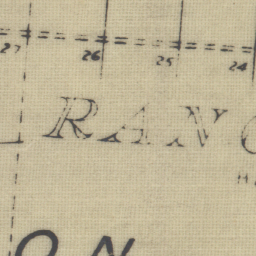 27 26 25 24
RAN
H
ON